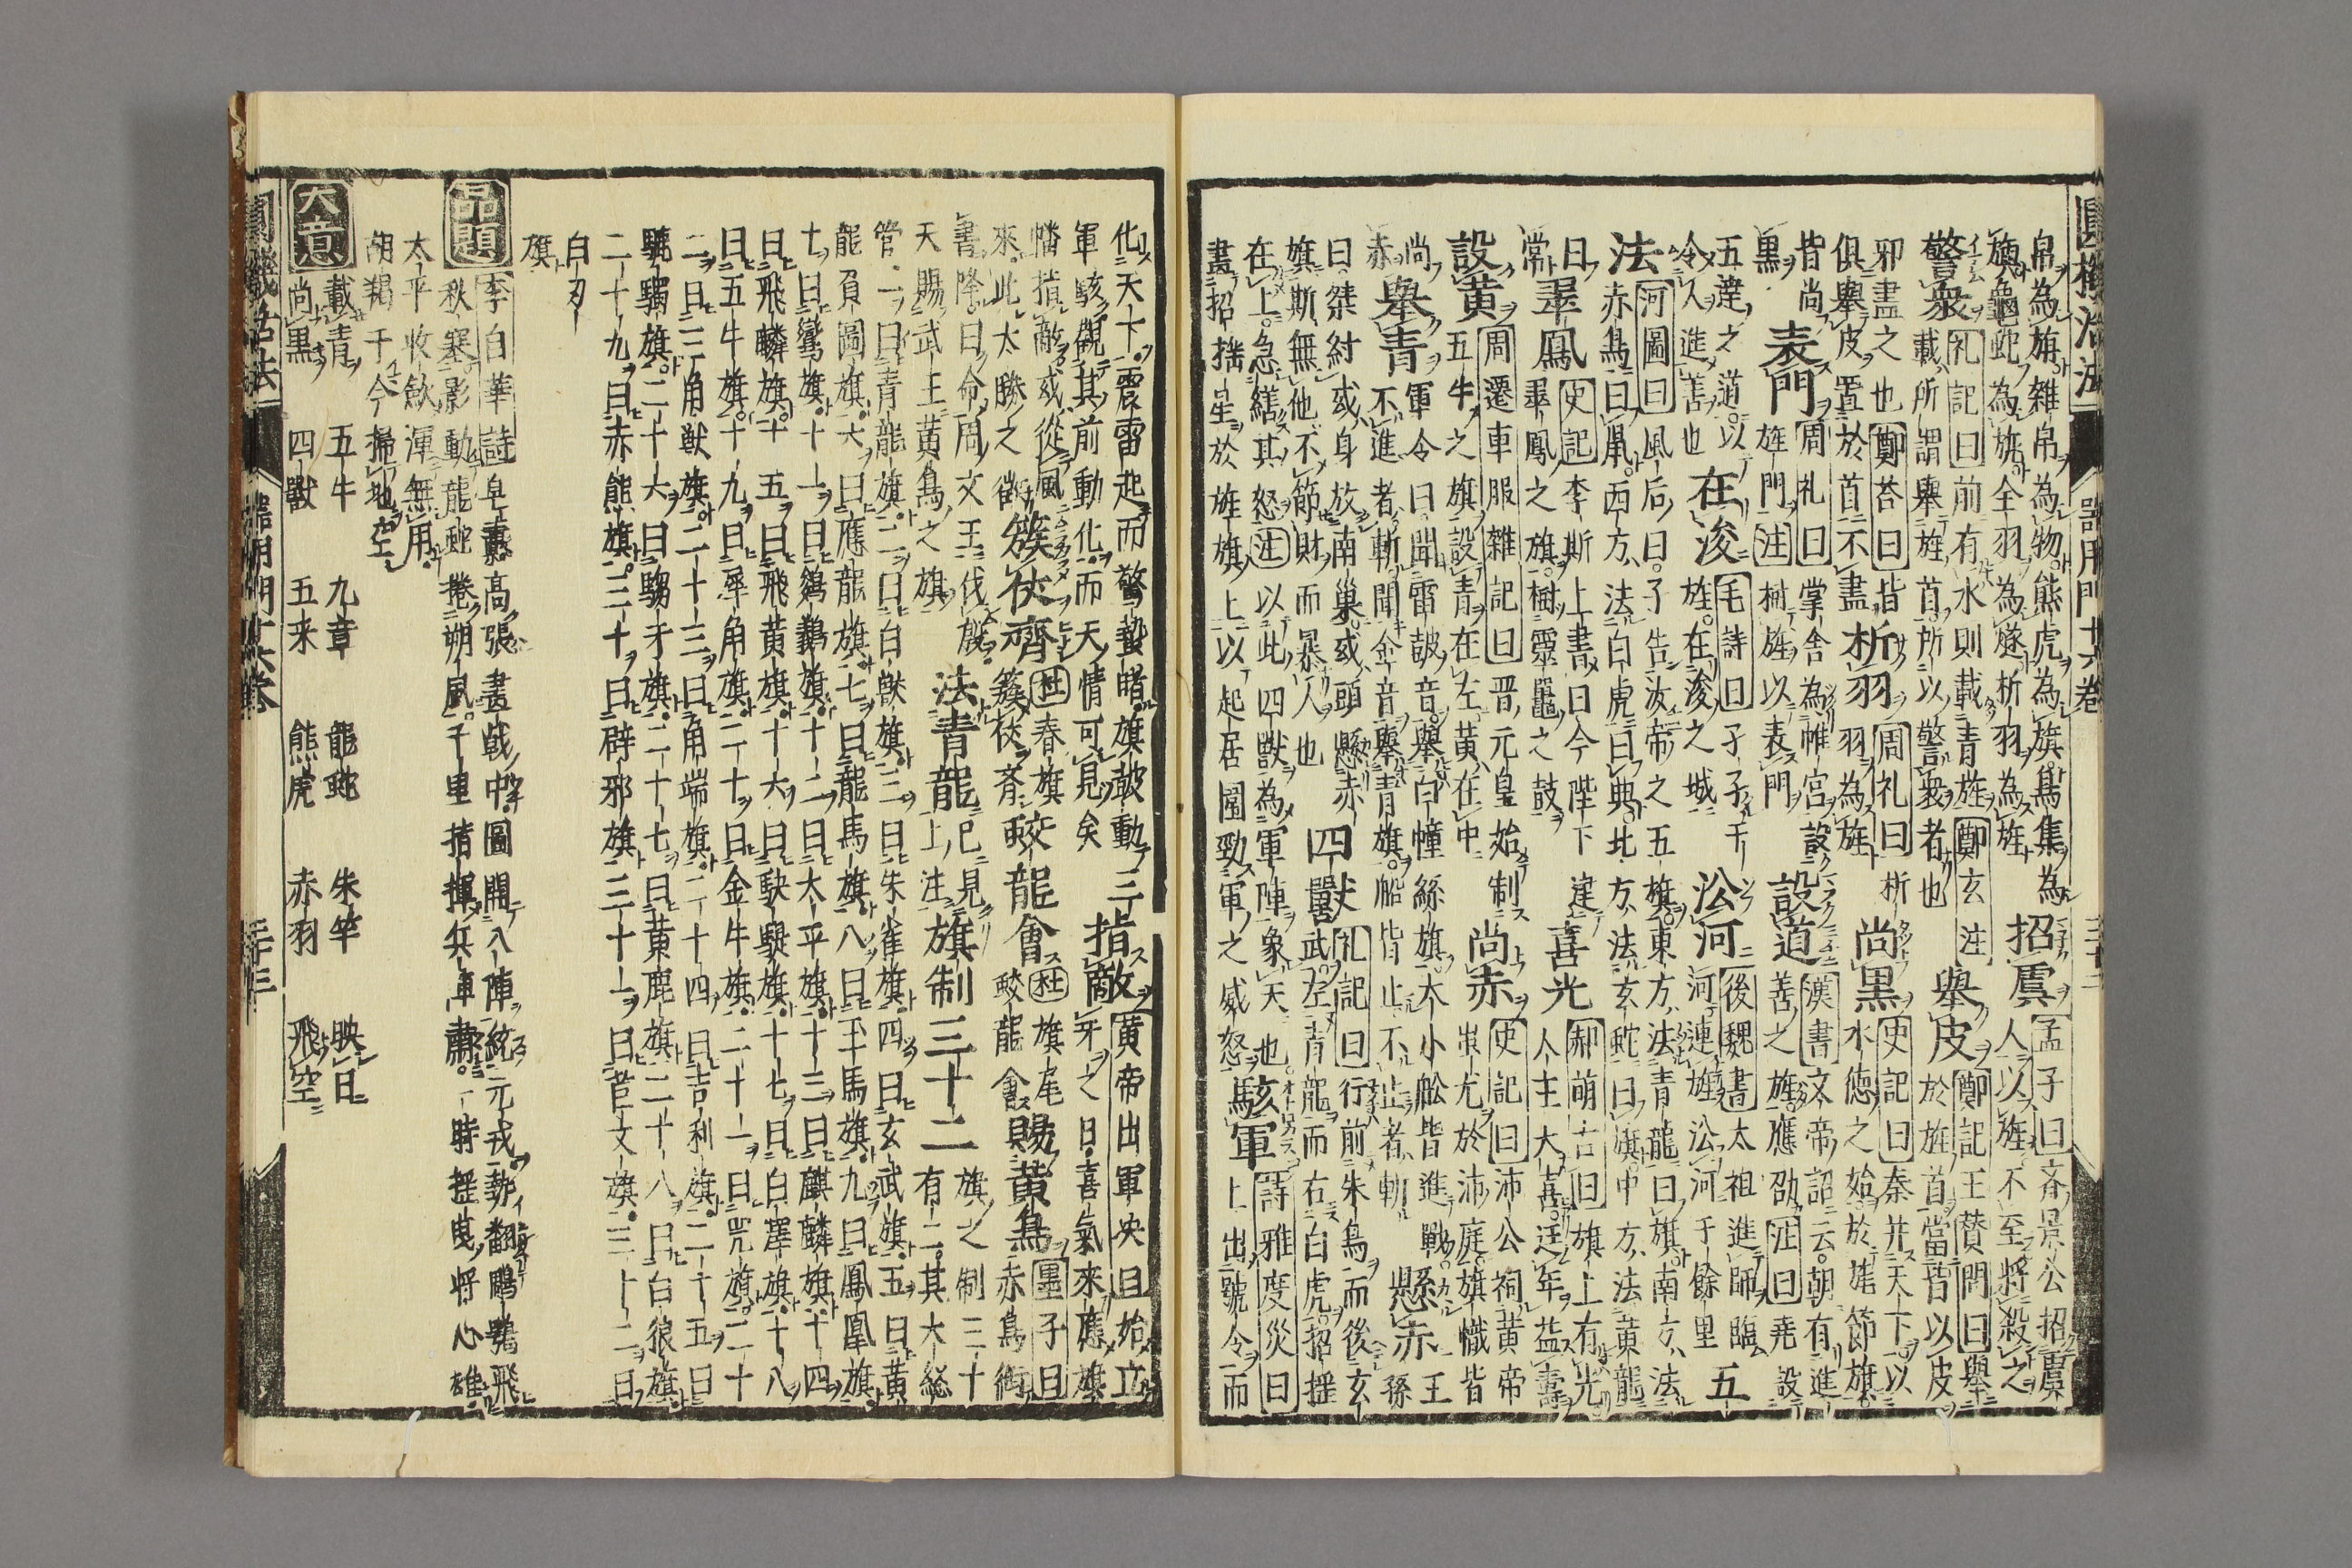 圓機活法 器用門十六卷 三十三
帛為旃雜帛為物熊虎為旗鳥集為
旟龜蛇為旐全羽為旞析羽為旌 招虞 孟子曰齊景公招虞人以旌不至將殺之
警衆 礼記曰前有水則載青旌鄭玄注載所謂舉旌首所以警衆者也 舉皮 鄭記王贊問曰舉皮於旌首當皆以皮
邪盡之也鄭荅曰皆俱舉皮置於首不盡 析羽 周礼曰析羽為旌 尚黒 史記曰秦并天下以水德之始於旄節旗
皆尚黒 表門 周礼曰掌舍為帷宮設旌門注樹旌以表門 設道 漢書文帝詔云朝有進善之旌應劭注曰堯設
五達之道以令人進善也 在浚 毛詩曰孑孑干旌在浚之城 沿河 後魏書太祖進師臨河連旌沿河于餘里 五
法 河圖曰風后曰予告汝帝之五旗東方法青龍曰旗南方法赤鳥曰𣃚西方法白虎曰典北方法玄蛇曰旗中方法黃龍
曰常 翠鳳 史記李斯上書曰今陛下建翠鳳之旗樹靈鼉之鼓 喜光 郝萌占曰旗上有光人主大喜廷年益壽
設黃 周遷車服雜記曰晋元皇始制五牛之旗設青在左黃在中 尚赤 史記曰沛公祠黃帝祟尤於沛庭旗幟皆
尚赤 舉青 軍令曰聞雷皷音舉白幢絲旗大小舩皆進戰不進者斬聞金音舉青旗船皆止不止者斬 懸赤 王孫
曰桀紂或身放南巢或頭懸赤旗斯無他不節財而暴人也 四獸 礼記曰行前朱鳥而後玄武左青龍而右白虎招揺
在上急繕其怒注以此四獸為軍陣象天也畫招揺星於旌旗上以起居圍勁軍之威怒 駭軍 詩雅度災曰上出號令而
化天下震雷起而警蟄暗旗皷動三軍駭觀其前動化而天情可見矣 指敵 黃帝出軍央曰始立牙之日喜氣來應旗
幡指敵或從風來此太勝之徵 簇伏齊 杜春旗簇伏斉 蛟龍會 杜旗尾蛟龍會 賜黃鳥 墨子曰赤鳥銜
書降曰命周文王伐殷天賜武王黃鳥之旗 法青龍 已見上注 旗制三十二 旗之制三十有二其大総
管一曰青龍旗二曰白獸旗三曰朱雀旗四曰玄武旗五曰黃
龍負圖旗六曰應龍旗七曰龍馬旗八曰玉馬旗九曰鳳凰旗
十曰鸞旗十一曰鵕鸃旗十二曰太平旗十三曰麒麟旗十四
曰飛麟旗十五曰飛黃旗十六曰駃騠旗十七曰白澤旗十八
曰五牛旗十九曰犀角旗二十曰金牛旗二十一曰兕旗二十
二曰三角獸旗二十三曰角端旗二十四曰吉利旗二十五曰
騼䮷旗二十六曰騶牙旗二十七曰黃鹿旗二十八曰白狼旗
二十九曰赤熊旗三十曰辟邪旗三十一曰苣文旗三十二曰
白刃
旗
品題 李白華詩 皁纛高張畫戟中圖開八陣統元戎勢翻鵰鶚飛
秋塞影動龍蛇捲朔風千里指揮兵車肅一時揺曳將心雄
太平收歛渾無用
胡羯于今掃地空
大意 載青 五牛 九章 龍蛇 朱竿 映日
尚黒 四獸 五来 熊虎 赤羽 飛空
圓機活法 器用門十六卷 三十三